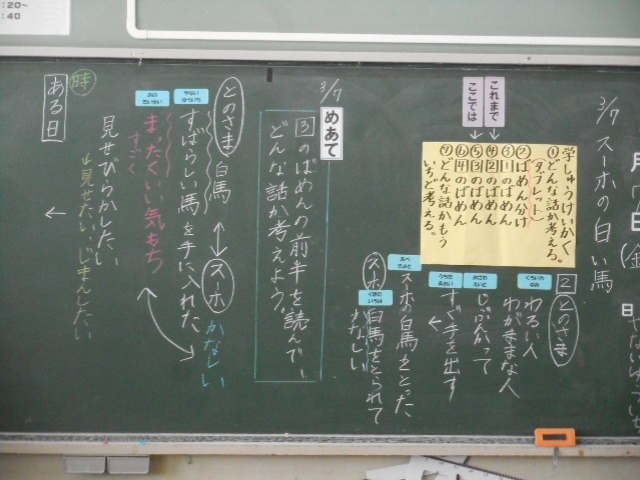 3/7 スーホの白い馬
学しゅうけいかく
①どんな話か考えよう。
(タブレット)
②ばめん分け
③①のばめん
④②のばめん
⑤③のばめん
⑥④のばめん
⑦どんな話かもう
いちど考える。
これまで
ここでは
②とのさま
わるい人
わがままな人
じぶんかって
すぐ手を出す
スーホの白馬をとった
スーホ
白馬をとられて
かなしい
3/7
めあて
③のばめんの前半を読んで、
どんな話か考えよう。
とのさま
白馬
スーホ
かなしい
すばらしい馬を手に入れた
まったくいい気もち
すごく
見せびらかしたい
見せたい、じまんしたい
時
ある日
:20~
:40